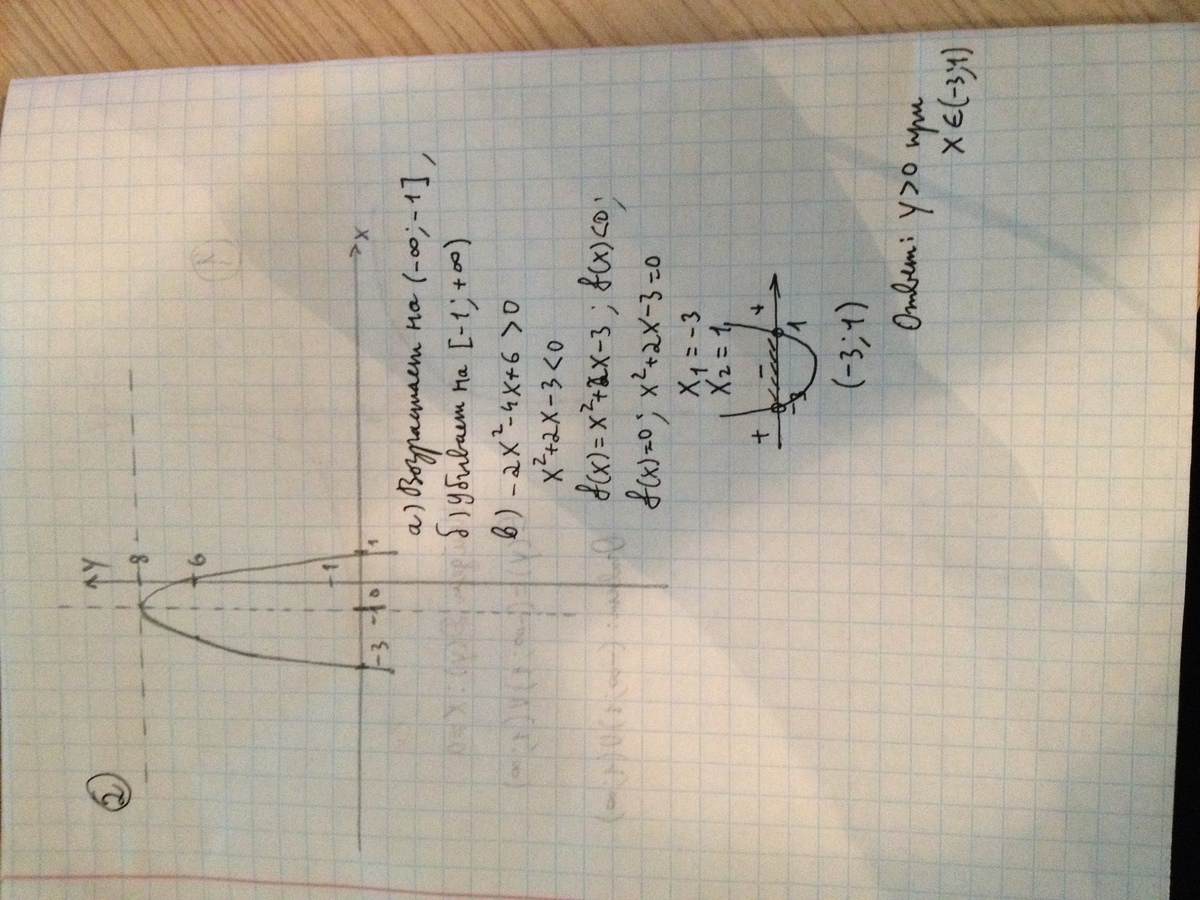 ②
y
8
6
1
-3 -1 0 1
x
а) Возрастает на (-∞; -1],
б) убывает на [-1; +∞)
в) -2x²-4x+6>0
x²+2x-3<0
f(x)=x²+2x-3; f(x)<0;
f(x)=0; x²+2x-3=0
x₁=-3
x₂=1
+ - +
-3 1
(-3; 1)
Ответ: y>0 при
x∈(-3; 1)